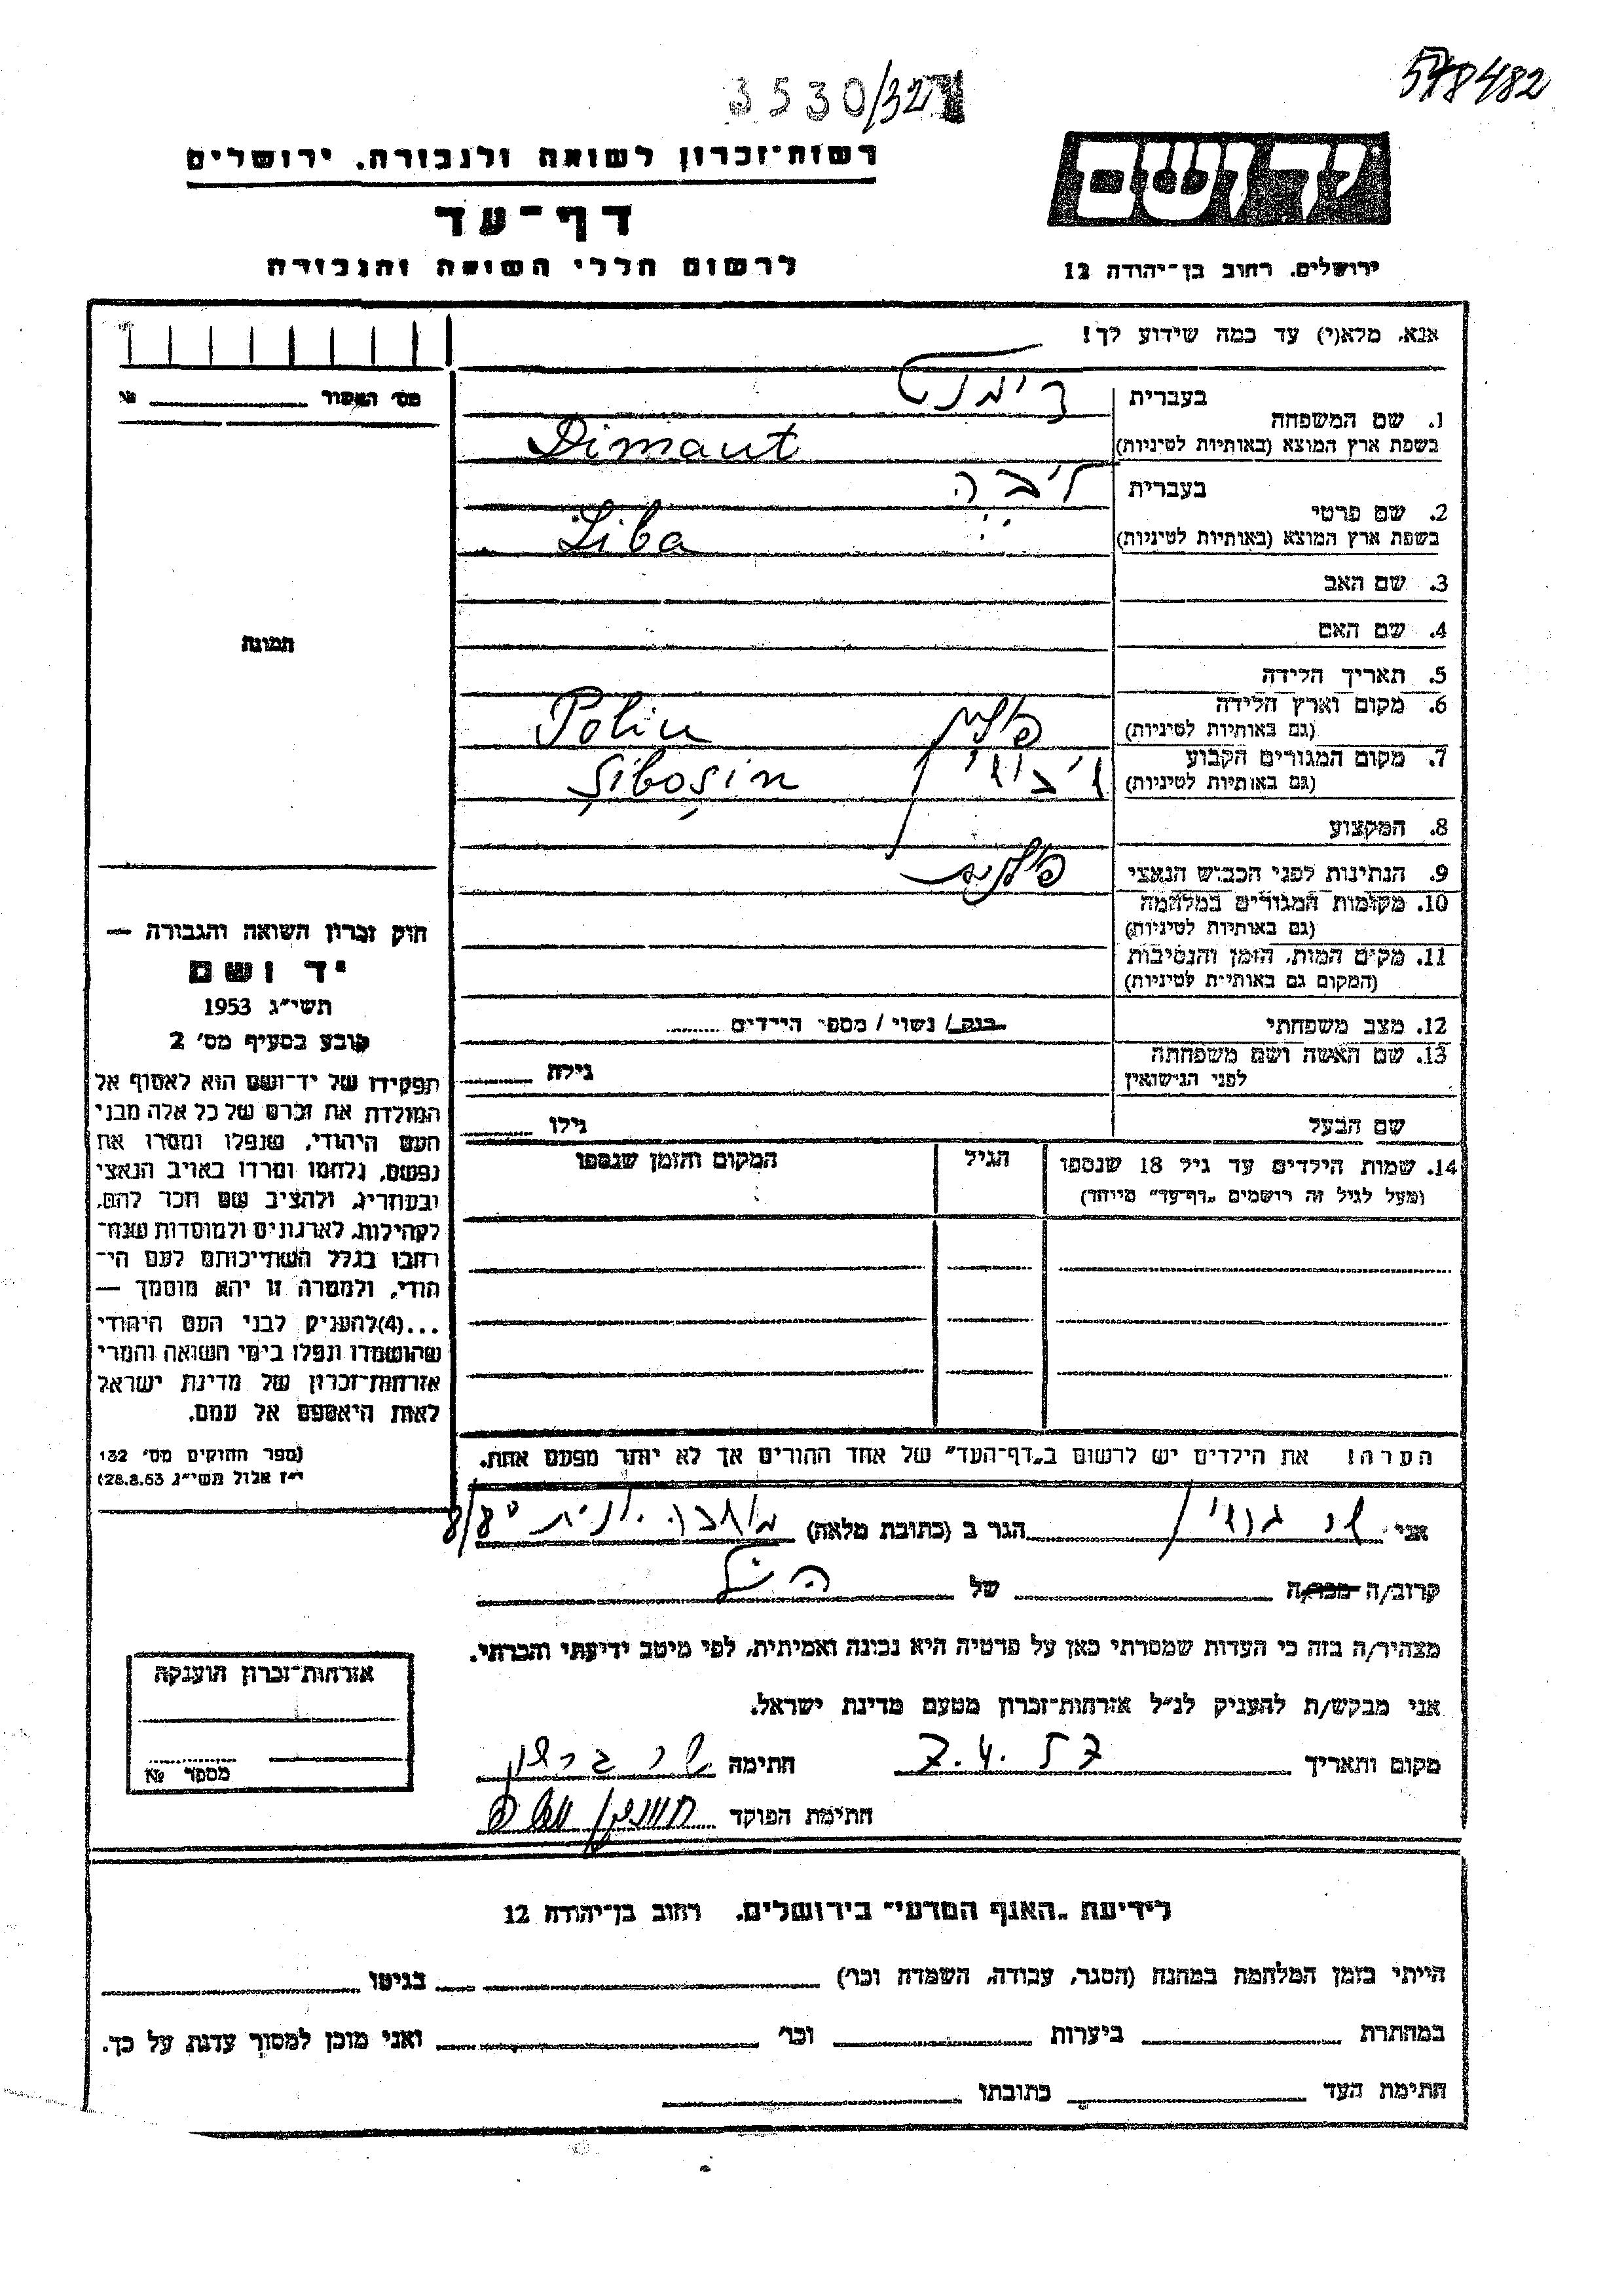 578482
3530/32
רשות־זכרון לשואה ולגבורה. ירושלים
דף־עד
לרשום חללי השואה והגבורה
יד ושם
ירושלים. רחוב בן־יהודה 12
אנא. מלא(י) עד כמה שידוע לך!
מס׳ האשור № 
1. שם המשפחה
בעברית דימנט
בשפת ארץ המוצא (באותיות לטיניות) Dimant
2. שם פרטי
בעברית ליבה
בשפת ארץ המוצא (באותיות לטיניות) Liba
3. שם האב
4. שם האם
תמונה
5. תאריך הלידה
6. מקום וארץ הלידה
(גם באותיות לטיניות) פולין Polin
7. מקום המגורים הקבוע
(גם באותיות לטיניות) Sibosin
8. המקצוע
9. הנתינות לפני הכבוש הנאצי
10. מקומות המגורים במלחמה
(גם באותיות לטיניות)
11. מקום המות, הזמן והנסיבות
(המקום גם באותיות לטיניות)
12. מצב משפחתי רווק / נשוי / מספר הילדים
13. שם האשה ושם משפחתה
לפני הנישואין גילה
שם הבעל גילו
14. שמות הילדים עד גיל 18 שנספו
(מעל לגיל זה רושמים „דף־עד" מיוחד)
הגיל
המקום והזמן שנספו
הערה! את הילדים יש לרשום ב„דף־העד" של אחד ההורים אך לא יותר מפעם אחת.
חוק זכרון השואה והגבורה —
יד ושם
תשי״ג 1953
קובע בסעיף מס׳ 2
תפקידו של יד־ושם הוא לאסוף אל
המולדת את זכרם של כל אלה מבני
העם היהודי, שנפלו ומסרו את
נפשם, נלחמו ומרדו באויב הנאצי
ובעוזריו, ולהציב שם וזכר להם,
לקהילות, לארגונים ולמוסדות שנח־
רבו בגלל השתייכותם לעם הי־
הודי, ולמטרה זו יהא מוסמך —
...(4)להעניק לבני העם היהודי
שהושמדו ונפלו בימי השואה והמרי
אזרחות־זכרון של מדינת ישראל
לאות היאספם אל עמם.
(ספר החוקים מס׳ 132
י״ז אלול תשי״ג 28.8.53)
אני הגר ב (כתובת מלאה) 8/8
קרוב/ה מכר/ה של הנ״ל
מצהיר/ה בזה כי העדות שמסרתי כאן על פרטיה היא נכונה ואמיתית, לפי מיטב ידיעתי והכרתי.
אני מבקש/ת להעניק לנ״ל אזרחות־זכרון מטעם מדינת ישראל.
מקום ותאריך 7.4.57 חתימה
חתימת הפוקד
אזרחות־זכרון הוענקה
מספר №
לידיעת „האגף המדעי" בירושלים. רחוב בן־יהודה 12
הייתי בזמן המלחמה במחנה (הסגר, עבודה, השמדה וכו׳) בגיטו
במחתרת ביערות וכו׳ ואני מוכן למסור עדות על כך.
חתימת העד כתובתו